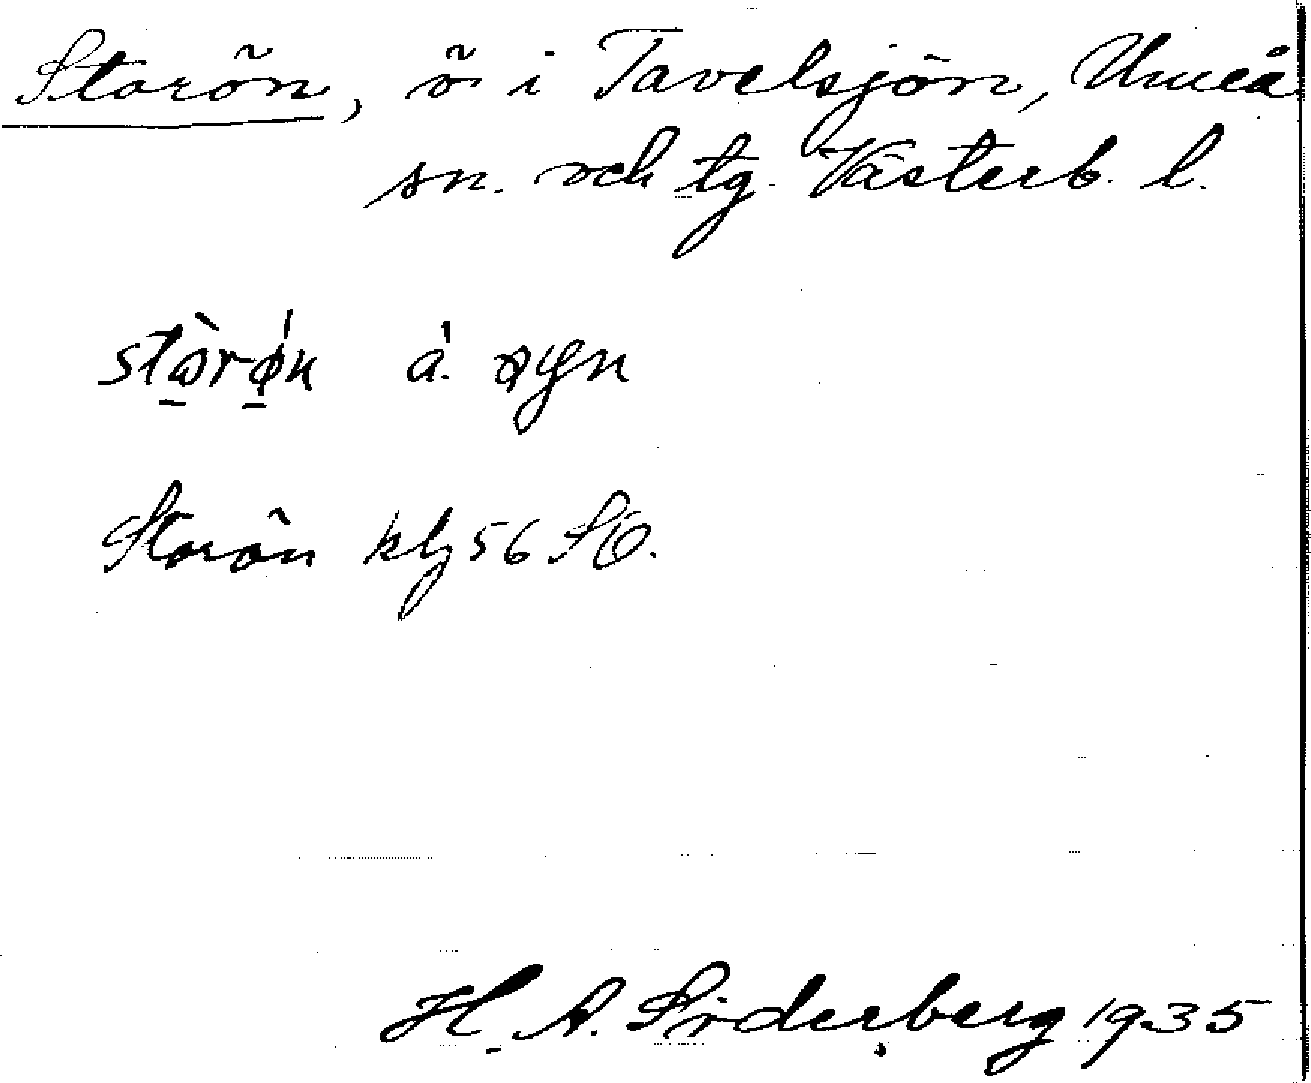 Storön, ö i Tavelsjön, Umeå
sn. och tg. Västerb. l.
stòrǿn á
Storön 56 SO.
H. A. Söderberg 1935